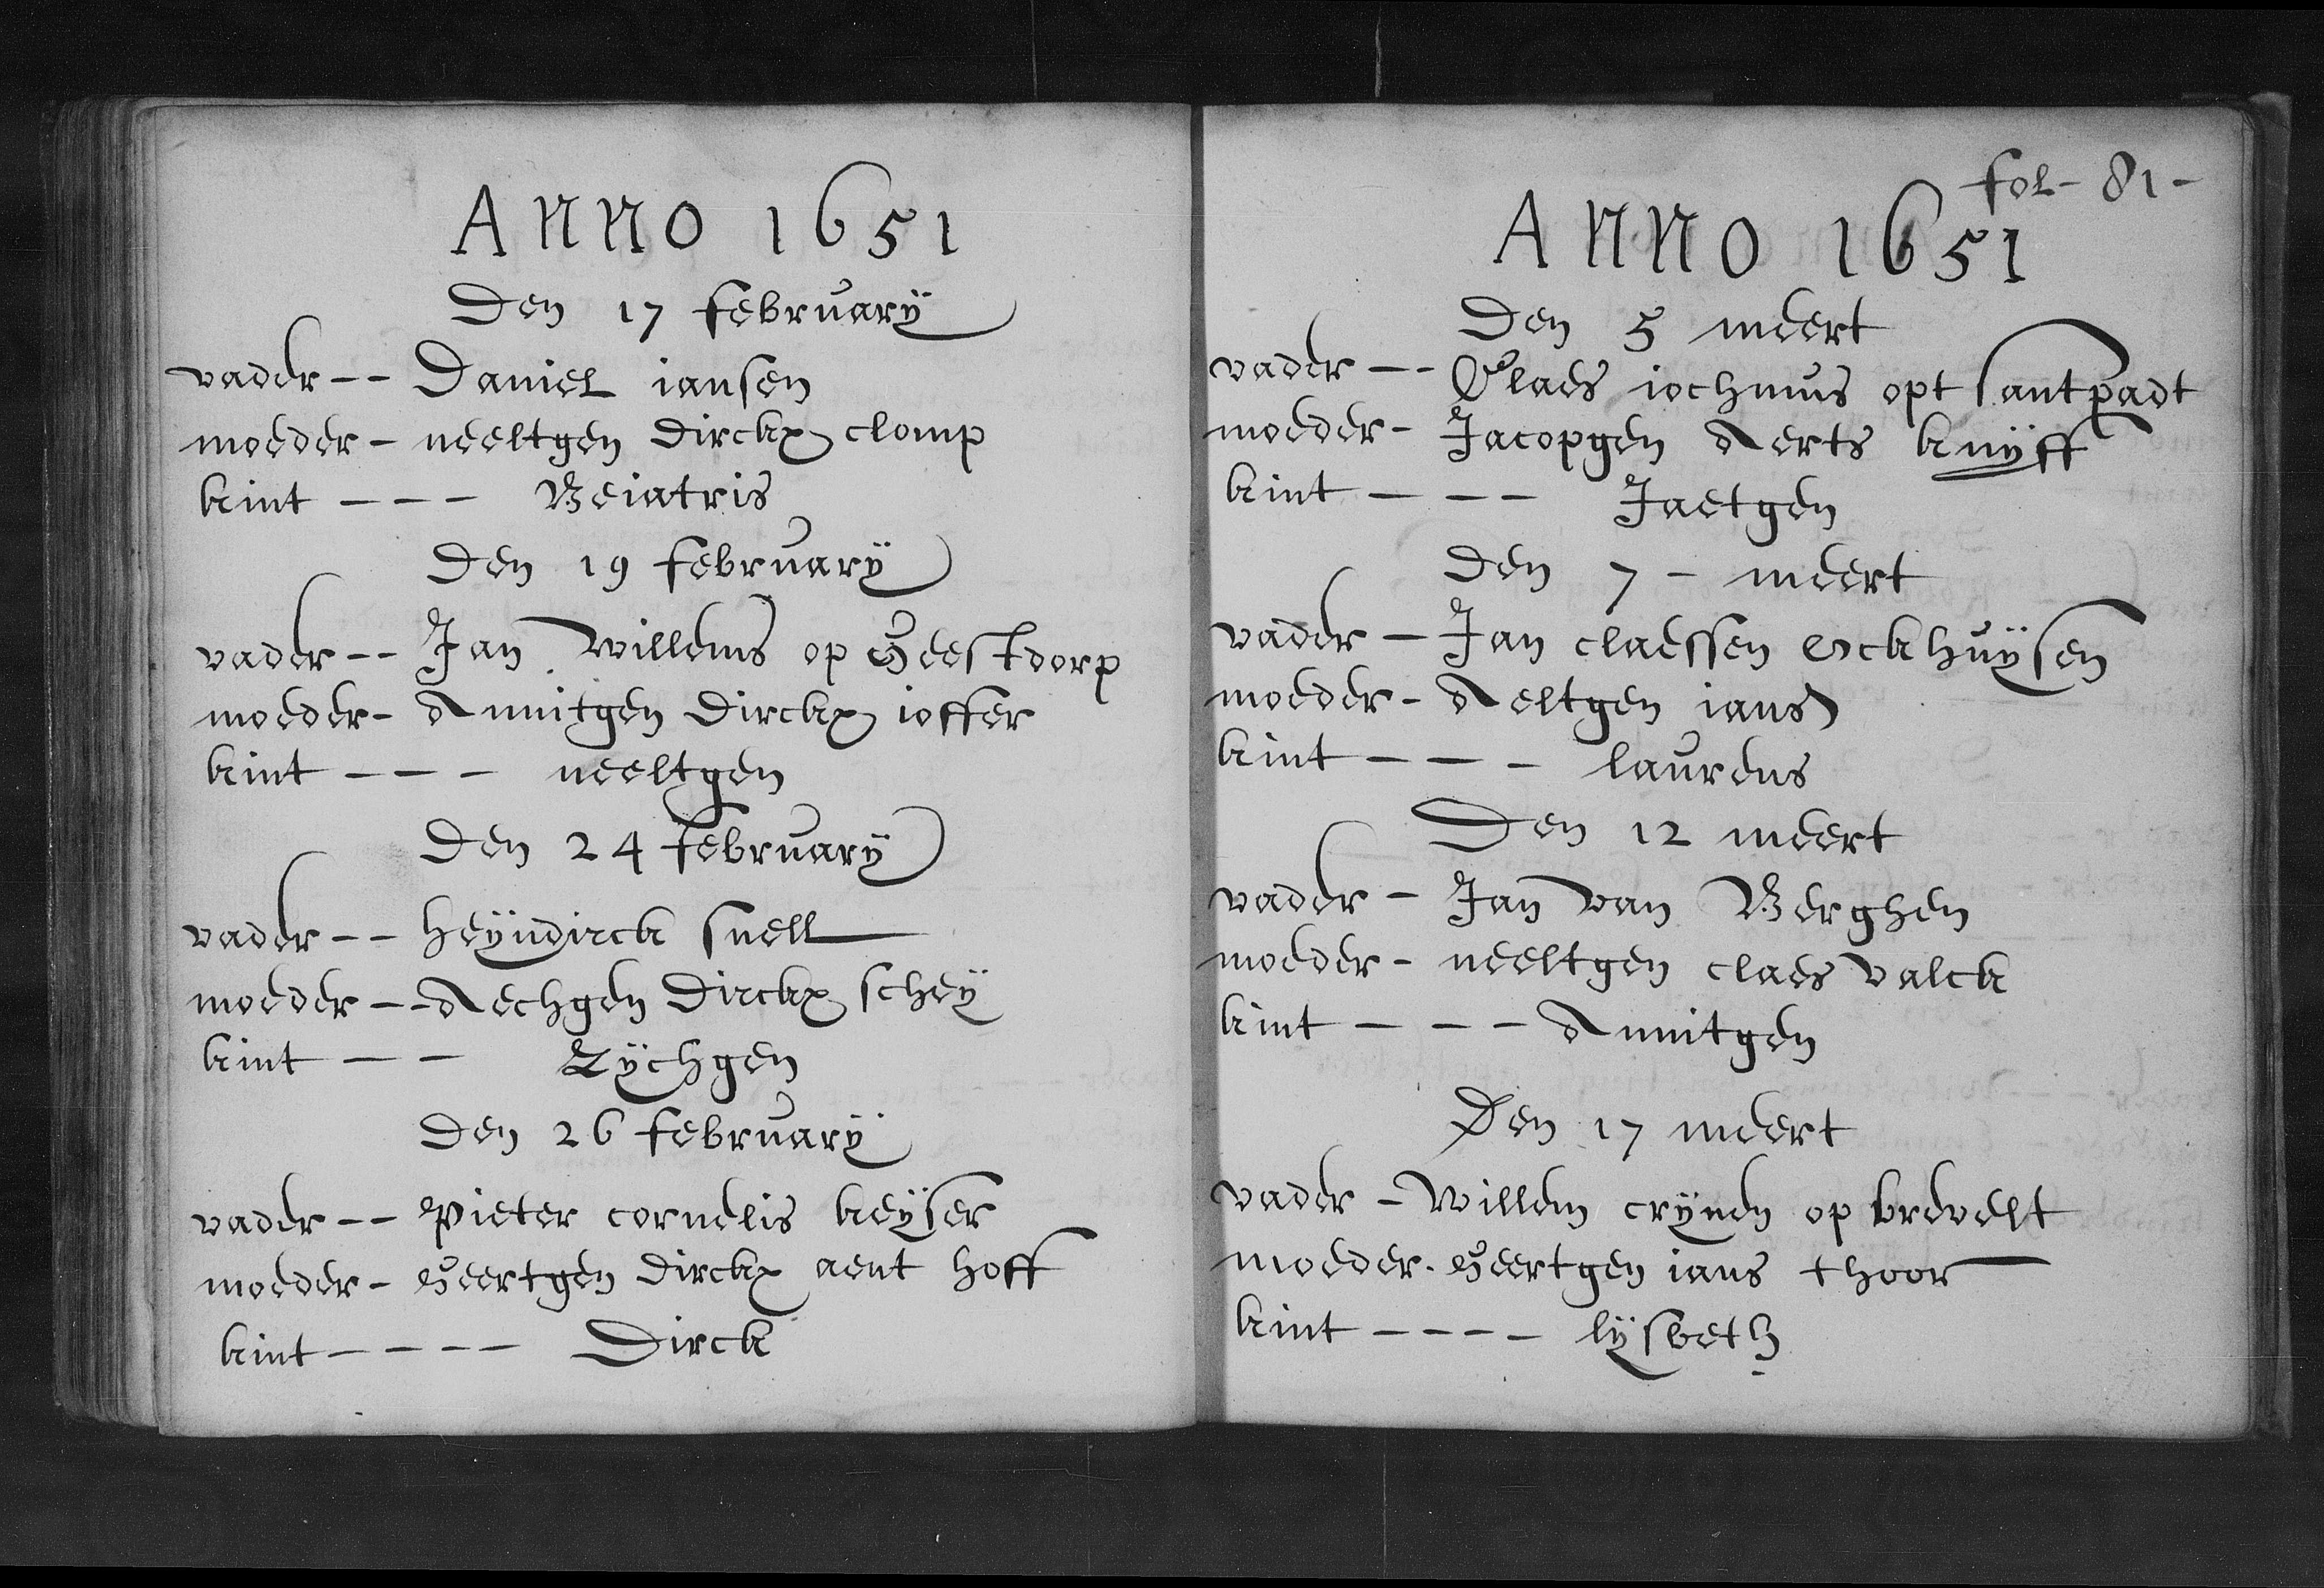 ANNO 1651
Den 17 february
vader -- Daniel iansen
moeder - neeltgen Dirckx clomp
kint --- Beiatris
Den 19 february
vader -- Jan Willems op Geestdorp
moeder - Annitgen Dirckx ioffer
kint --- neeltgen
Den 24 february
vader -- heÿndirck snell
moeder -- Aechgen Dirckx scheÿ
kint -- Lÿchgen
Den 26 february
vader -- Pieter cornelis keÿser
moeder - Geertgen Dirckx aent hoff
kint ---- Dirck
fol - 81 -
ANNO 1651
Den 5 meert
vader -- Claes iochmus opt santpadt
moeder - Jacopgen Aerts knÿff
kint --- Jaetgen
Den 7 - meert
vader - Jan claessen Ockhuÿsen
moeder - Aeltgen ians
kint --- laurens
Den 12 meert
vader - Jan van Berghen
moeder - neeltgen claes valck
kint --- Annitgen
Den 17 meert
vader - Willem crÿnen op brevelt
moeder - Geertgen ians thoor
kint ---- lÿsbeth